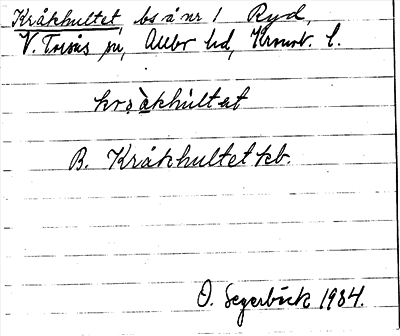 Kråkhultet bs å nr 1 Ryd,
V. Torsås sn, Allbo hd, Kronob. l.
krɷ̀khúltət
B. Kråkhultet kb.
O. Segerbäck 1934.